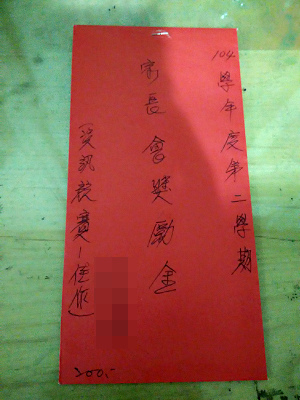 104學年度第二學期
家長會獎勵金
(資訊競賽-佳作)
200.-